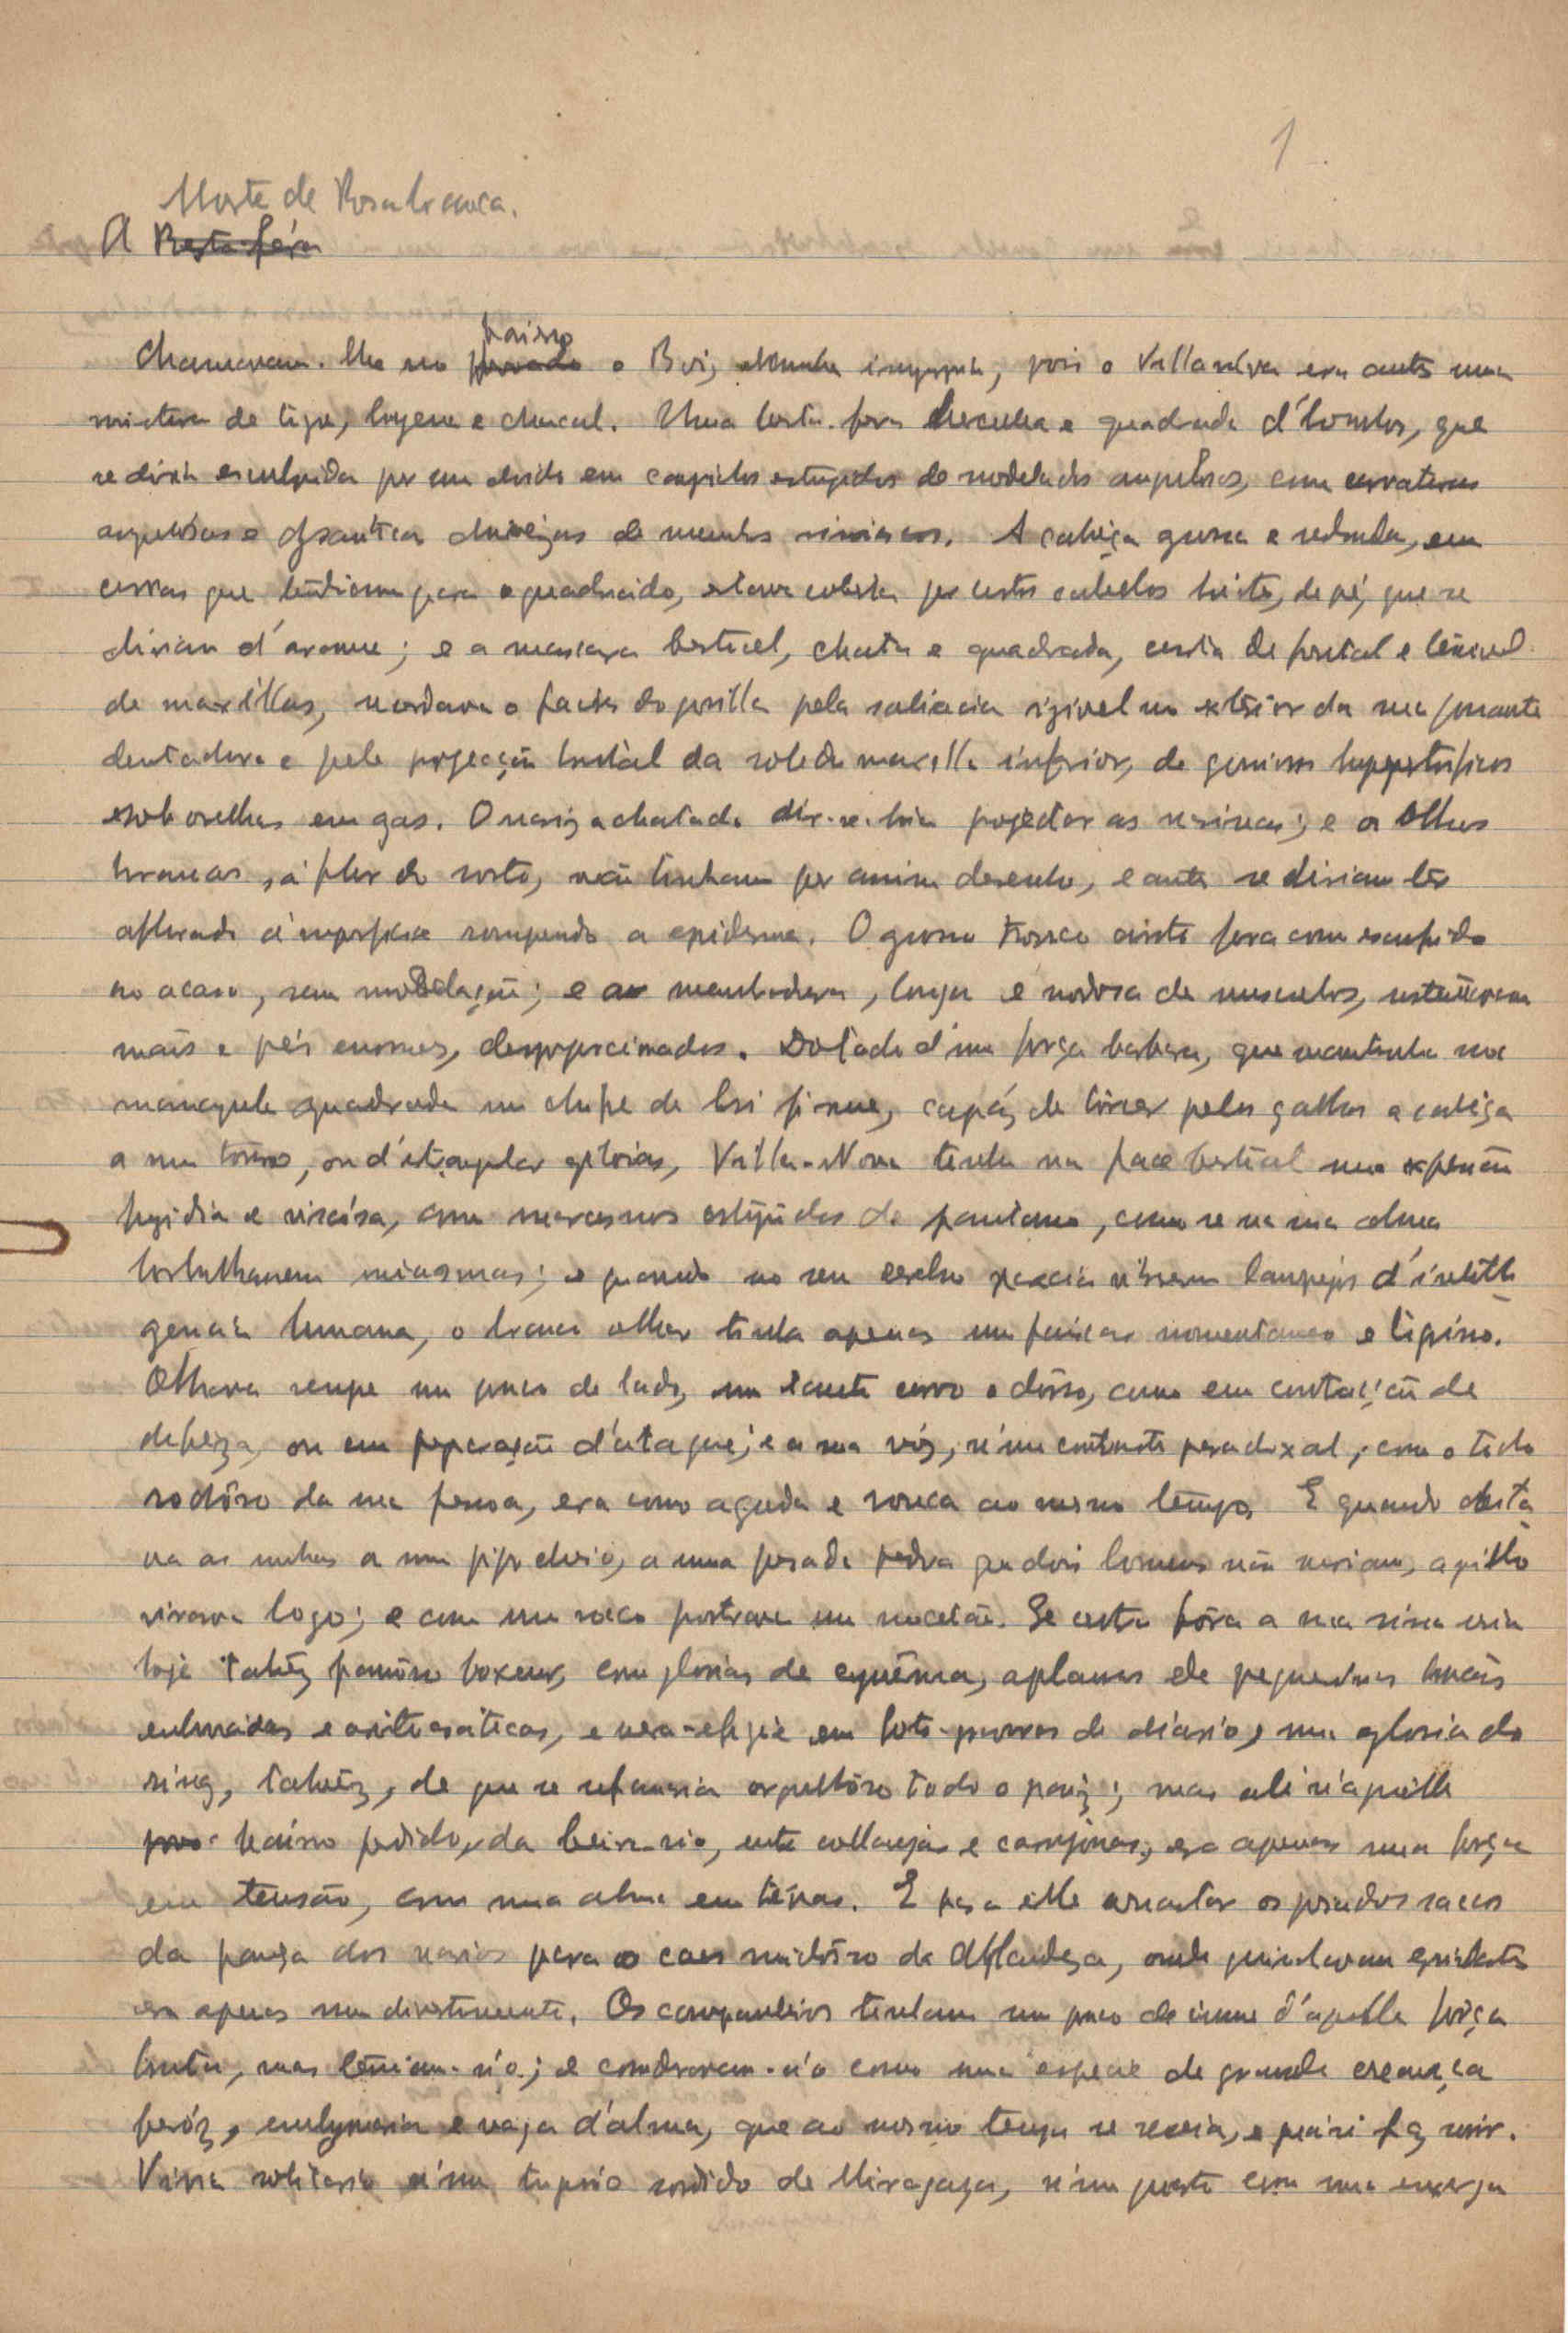 1
Morte de Rosabranca.
A Besta-féra
bairro
Chamavam-lhe no povoado o Boi, alcunha impropria, pois o Villa-nova era antes uma
mistura de tigre, hyena e chacal. Uma besta-fera herculea e quadrada d'hombros, que
se diria esculpida por um doido em caprichos estupidos de modelados angulosos, com
angulosas e de membros simiescos. A cabeça grossa e redonda, em
curvas que tendiam para o quadrado, estava coberta por curtos cabellos hirtos, de pé, que se
diriam d'arame; e a mascara bestial, chata e quadrada, curta de frontal e terrivel
de maxillas, recordava o facies do gorilla pela saliencia visivel no exterior da sua possante
dentadura e pela projecção brutal da solida maxilla inferior, de hypertroficos
e sob orelhas em gas. O nariz achatado dir-se-hia projectar as narinas; e os olhos
brancos, á flor do rosto, não tinham por assim desenho, e antes se diriam ter
aflorado á superficie rompendo a epiderme. O grosso tronco curto fora como esculpido
ao acaso, sem modelação; e a membradura, longa e nodosa de musculos, sustentavam
mãos e pés enormes, desproporcionados. Dotado d'uma força barbara, que mantinha na
quadrada um de boi firme, capáz de torcer pelos galhos a cabeça
a um touro, ou d'estrangular, Villa-Nova tinha na face bestial uma expressão
frigida e viscósa, como estagnados de pantano, como se na sua alma
borbulhassem miasmas; e quando no seu cerebro parecia vibrarem lampejos d'intelli-
gencia humana, o branco olhar tinha apenas um faiscar momentaneo e tigrino.
Olhava sempre um pouco de lado, um tanto curvo o dórso, como em contacção de
defeza, ou em preparação d'ataque; e a sua vóz, n'um contraste paradoxal, com o todo
rodôso da sua pessoa, era como aguda e rouca ao mesmo tempo. E quando deita-
va as unhas a uma pipa cheia, a uma pesada pedra que dois homens não, aquillo
virava logo; e com um soco prostrava um mocetão. Se outra fôra a sua sina seria
hoje talvêz famôso boxeur, com glorias de cynêma, aplausos de pequenas
e aristocraticas, e vera-efigie em foto-gravuras de diario, uma gloria do
ring, talvêz, de que se ufanaria orgulhôso todo o paiz; mas ali n'aquelle
povo bairro perdido, da beira-rio, entre e, era apenas uma força
em tensão, com uma alma em trévas. E para elle arrastar os pesados sacos
da pança dos navios para o caes da Alfandega, onde guindavam
era apenas um divertimento. Os companheiros tinham um pouco de ciume d'aquella força
bruta, mas temiam-n'o; e consideravam-n'o como uma especie de grande creança
feróz, e vaga d'alma, que ao mesmo tempo se receia, e faz rir.
Vivia solitario n'um tugurio sordido de Miragaya, n'um quarto com uma enxerga